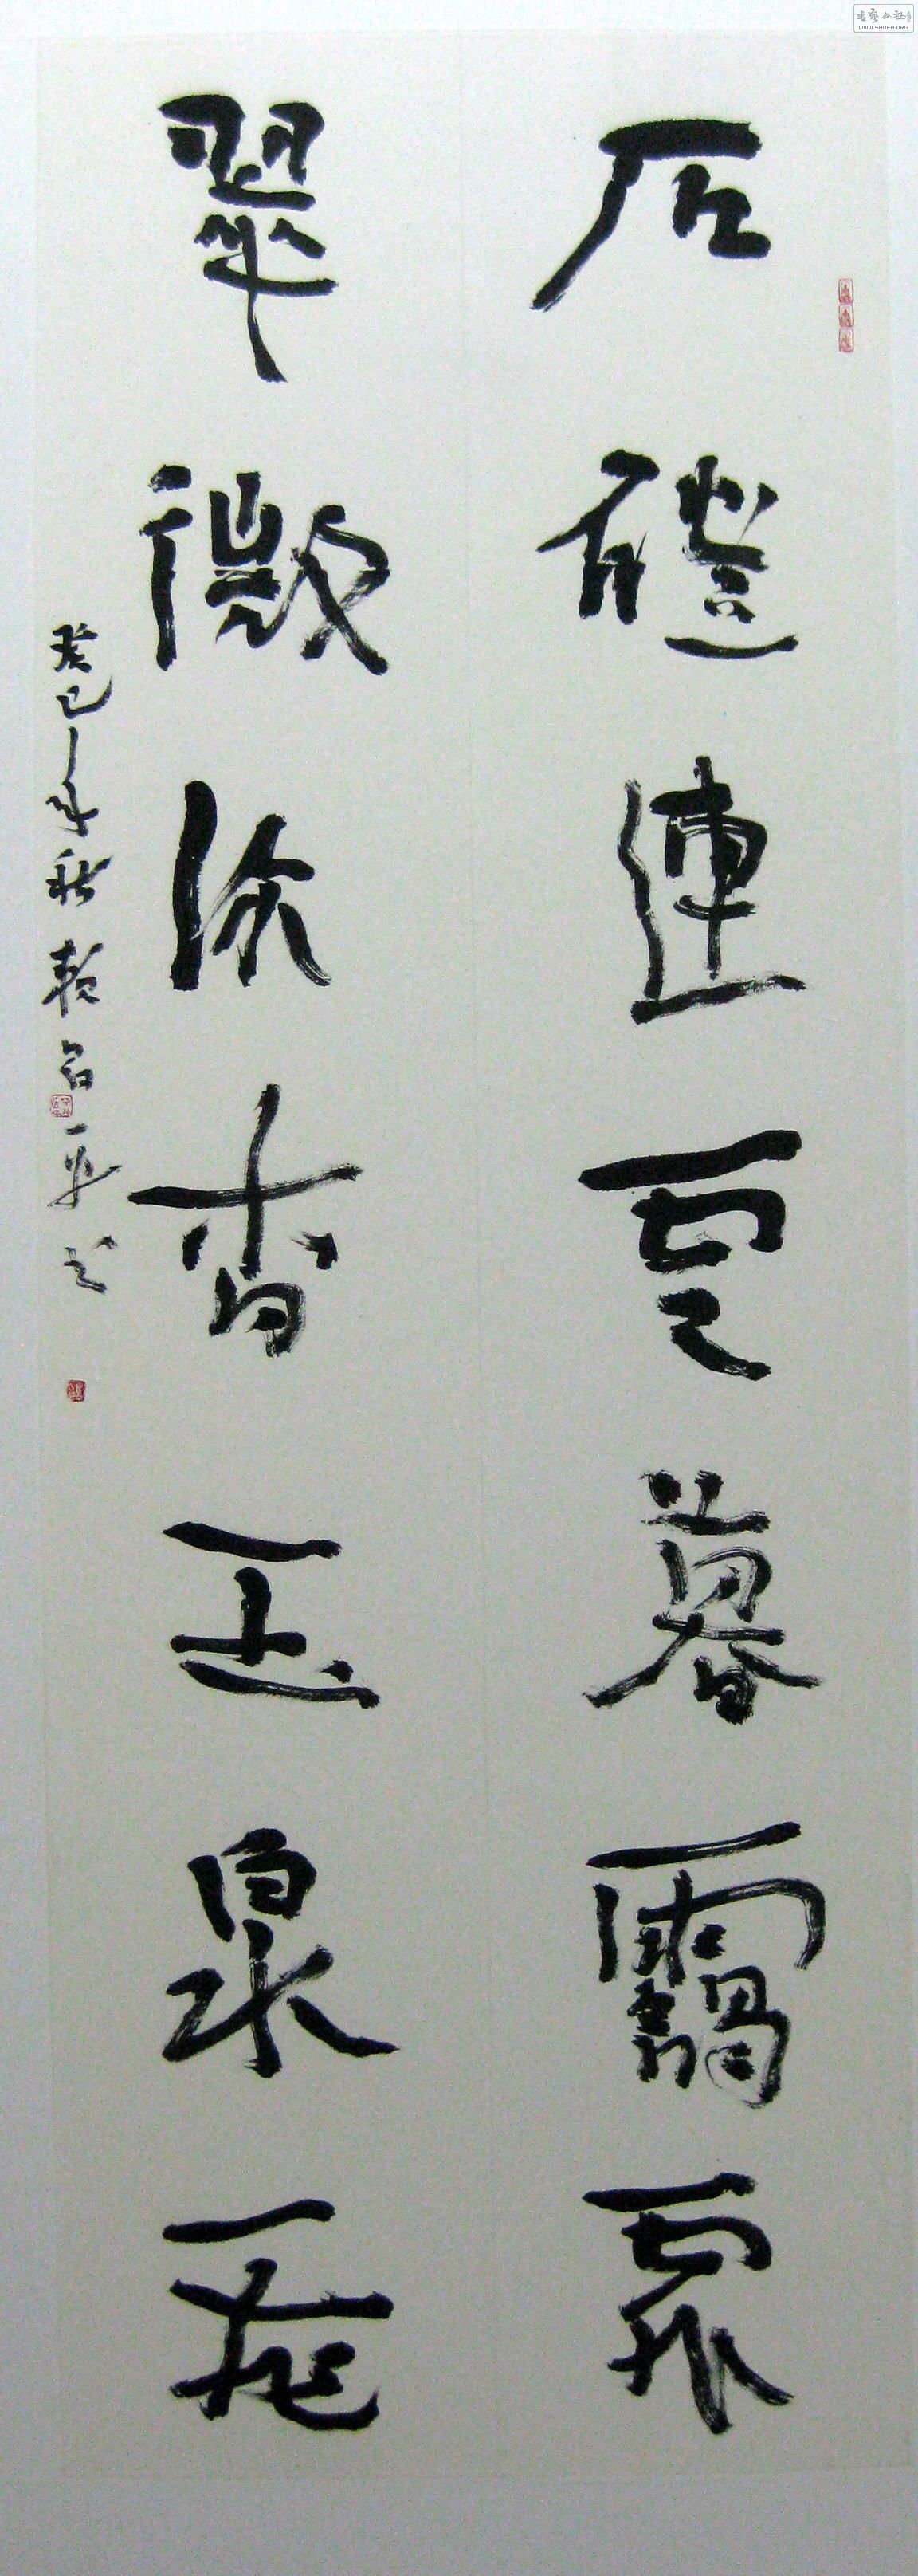 石磴連雲暮靄霏
翠微深杳玉泉飛
癸巳年秋賴召平書
WWW.SHUFA.ORG